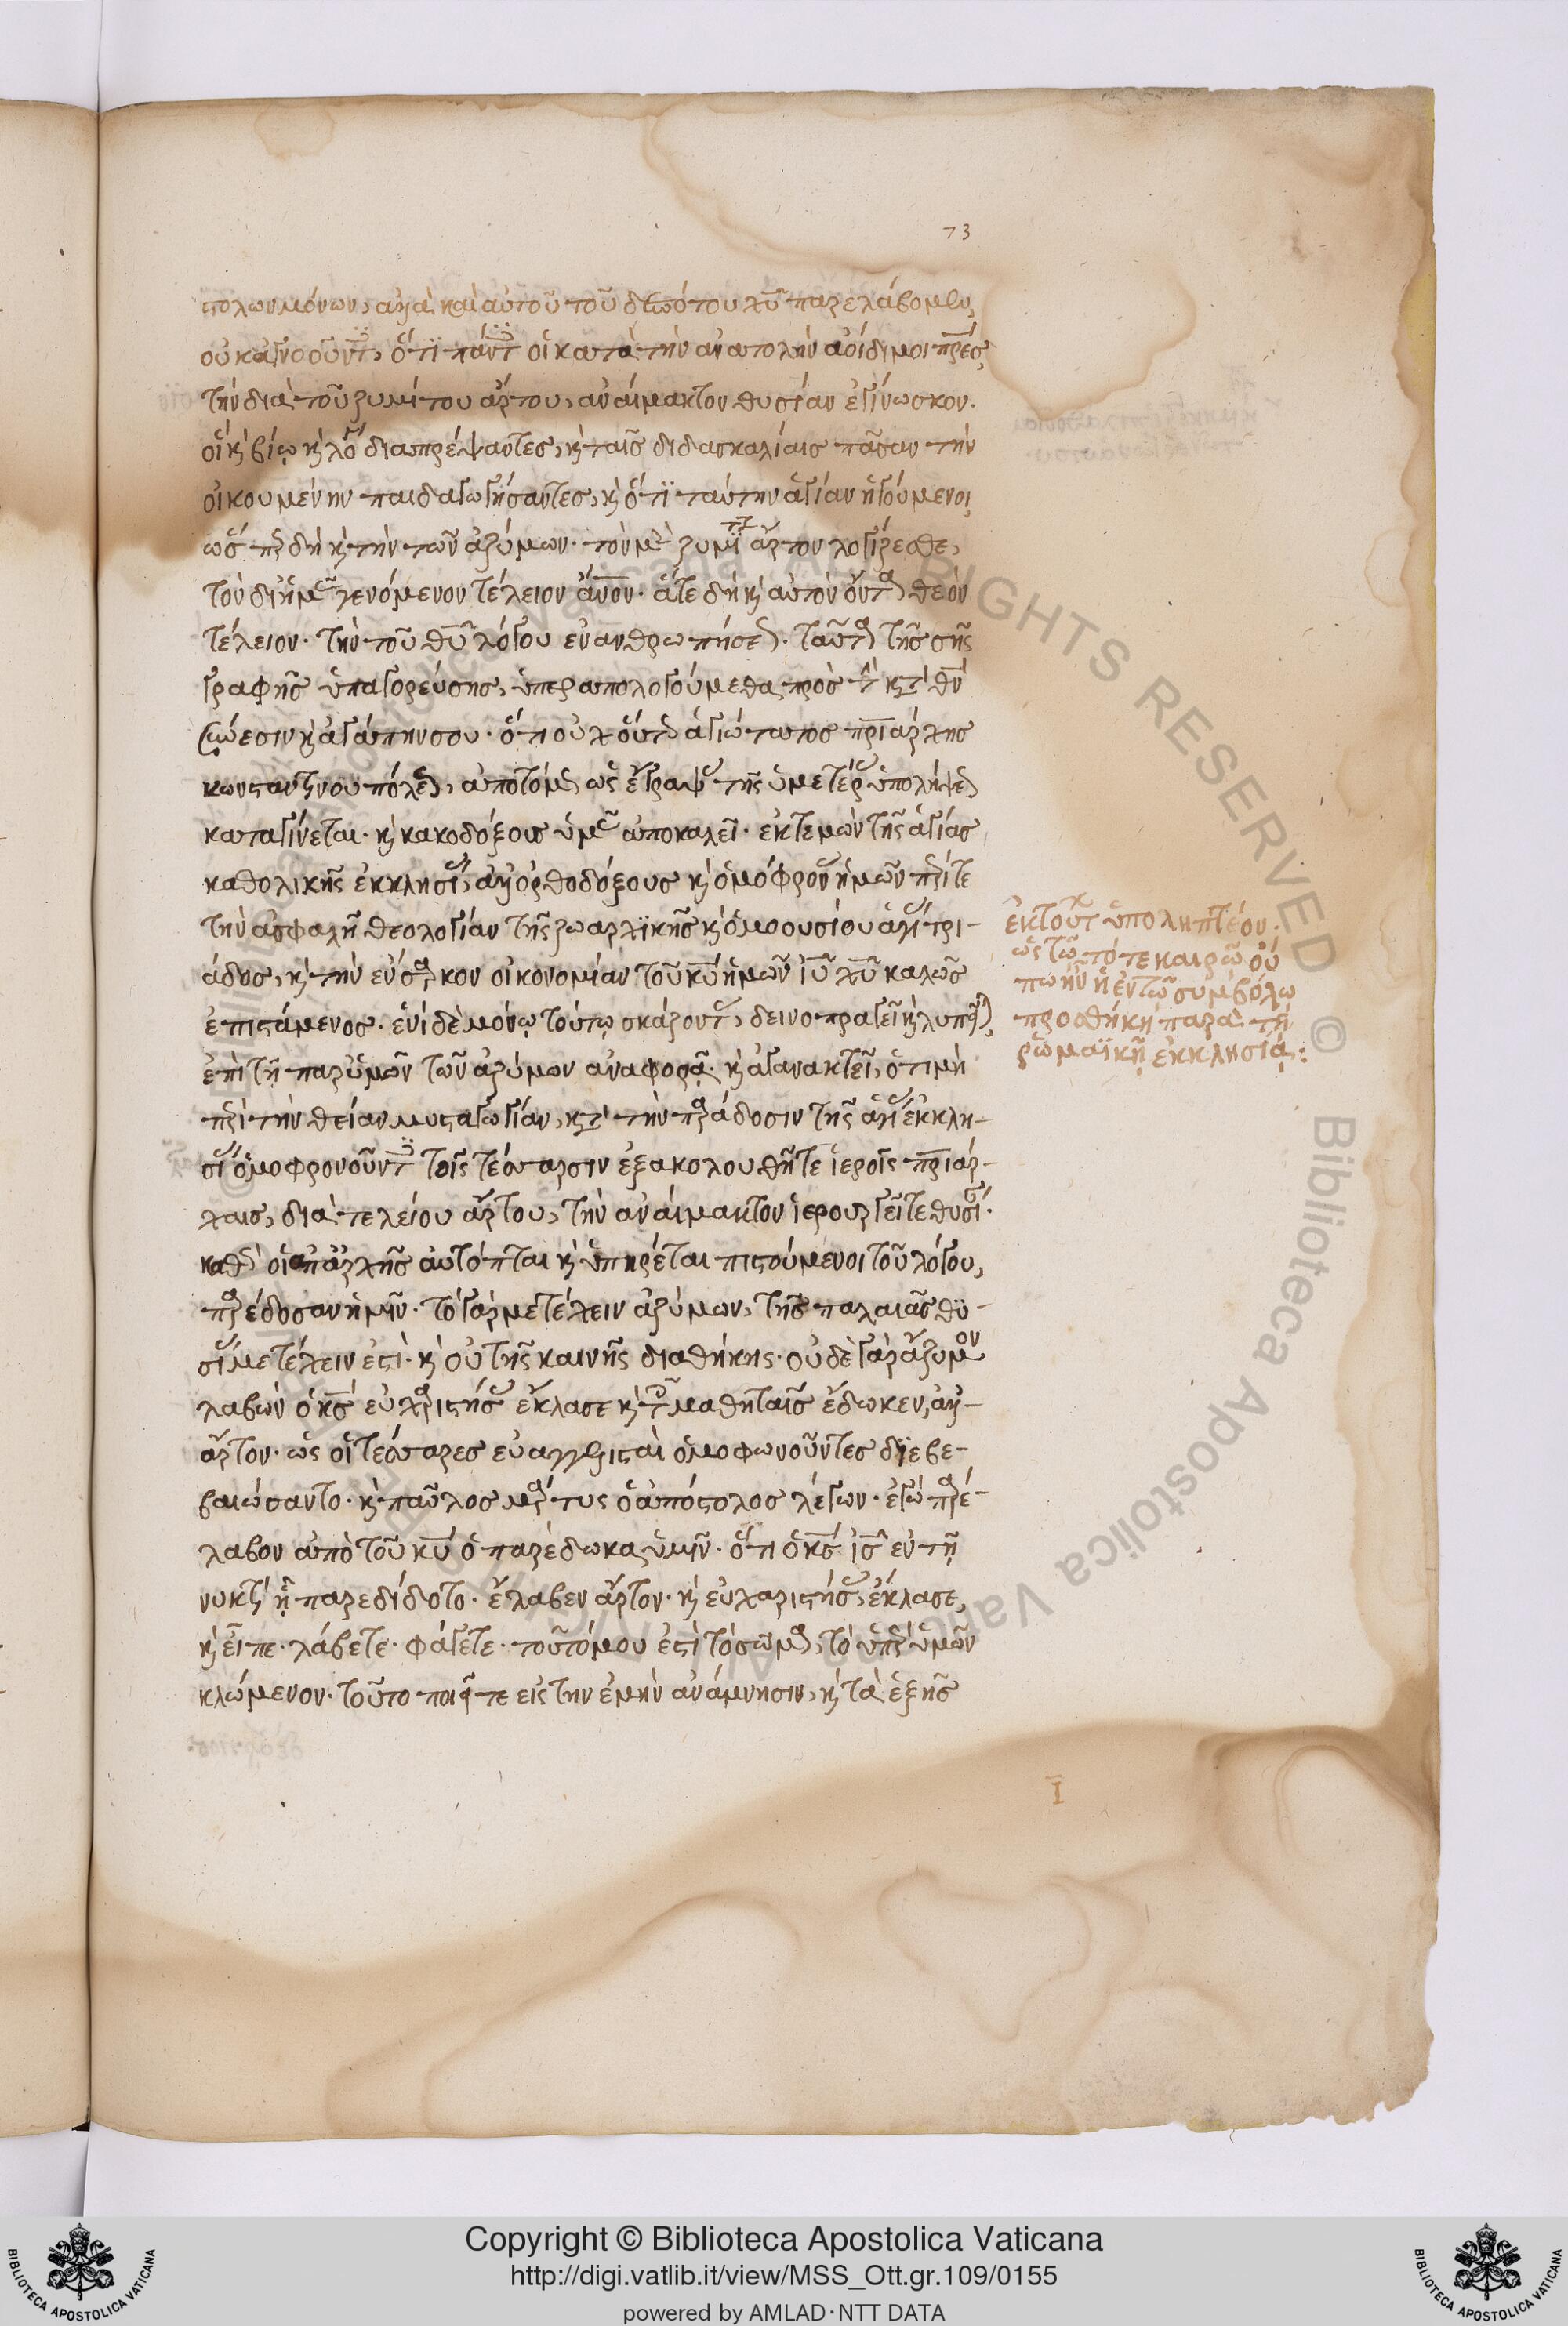 73
στόλων μόνων, ἀλλὰ καὶ αὐτοῦ τοῦ δεσπότου χῦ παρελάβομεν,
οὐκ ἀγνοοῦντ, ὅτι πάντ οἱ κατὰ τὴν ἀνατολὴν ἀοίδιμοι πρέσ,
τὴν διὰ τοῦ ζυμίτου ἄρτου, ἀναίμακτον θυσίαν ἐγίνωσκον.
οἱ κ βίῳ κ λό διαπρέψαντες, κ ταῖς διδασκαλίαις πᾶσαν τὴν
οἰκουμένην παιδαγωγήσαντες, κ ὅτι ταύτην ἁγίαν ἡγούμενοι
δὴ κ τὴν τῶν ἀζύμων. τὸν μ ζυμῖτ ἄρτον λογίζεσθε,
τὸν δι ἡμ γενόμενον τέλειον ἄνον. ἅτε δὴ κ αὐτὸν ὄντα θεὸν
τέλειον. τὴν τοῦ θῦ λόγου ἐνανθρωπήσε. ταῦτα τῆς σῆς
γραφῆς ὑπαγορεύσης, ὑπεραπολογούμεθα πρὸς τ κτ θν
σύνεσιν κ ἀγάπην σου. ὅτι οὐχ οὕτως ἁγιώτατος πριάρχης
κωνσταντινουπόλε, ἀποτόμως ὡς ἔγραψας τῆς ὑμετέρας ὑπολήψε
καταγίνεται. κ κακοδόξους ὑμ ἀποκαλεῖ. ἐκτεμὼν τῆς ἁγίας
καθολικῆς ἐκκλησί, ἀλλ ὀρθοδόξους κ ὁμόφρον ἡμῶν περί τε
τὴν ἀσφαλῆ θεολογίαν τῆς ζωαρχικῆς κ ὁμοουσίου ἁγί τρι-
άδος, κ τὴν ἔνσαρκον οἰκονομίαν τοῦ κῦ ἡμῶν ἰῦ χῦ καλῶς
ἐπιστάμενος. ἑνὶ δὲ μόνῳ τούτῳ σκάζοντ, δεινοπραγεῖ κ λυπῆ,
ἐπὶ τῇ παρ ὑμῶν τῶν ἀζύμων ἀναφορᾷ. κ ἀγανακτεῖ, ὅτι μὴ
περὶ τὴν θείαν μυσταγωγίαν, κτ τὴν παράδοσιν τῆς ἁγί ἐκκλη-
σί ὁμοφρονοῦντ τοῖς τέσσαρσιν ἐξακολουθῆτε ἱεροῖς πριάρ-
χαις, διὰ τελείου ἄρτου, τὴν ἀναίμακτον ἱερουργεῖτε θυσί.
καθὼ οἱ ἀπαρχῆς αὐτόπται κ ὑπηρέται πιστούμενοι τοῦ λόγου,
παρέδοσαν ἡμῖν. τὸ γὰρ μετέχειν ἀζύμων, τῆς παλαιᾶς θυ-
σί μετέχειν ἐστὶ. κ οὐ τῆς καινῆς διαθήκης. οὐδὲ γὰρ ἄζυμον
λαβὼν ὁ κς εὐχαριστήσ ἔκλασε κ τ μαθηταῖς ἔδωκεν, ἀλλ-
ἄρτον. ὡς οἱ τέσσαρες εὐαγγελισταὶ ὁμοφωνοῦντες διεβε-
βαιώσαντο. κ παῦλος μάρτυς ὁ ἀπόστολος λέγων. ἐγὼ παρέ-
λαβον ἀπὸ τοῦ κῦ ὃ παρέδωκα ὑμῖν. ὅτι ὁ κς ἰς ἐν τῇ
νυκτὶ ᾗ παρεδίδοτο. ἔλαβεν ἄρτον. κ εὐχαριστήσ, ἔκλασε,
κ εἶπε. λάβετε. φάγετε. τοῦτό μου ἐστὶ τὸ σῶμα, τὸ ὑπὲρ ὑμῶν
κλώμενον. τοῦτο ποιῆτε εἰς τὴν ἐμὴν ἀνάμνησιν, κ τὰ ἑξῆς
ἐκ τούτ ὑποληπτέον.
ὡς τῷ τότε καιρῷ οὔ
πω ἦν ἡ ἐν τῷ συμβόλῳ
προσθήκη παρὰ τῇ
ῥωμαϊκῇ ἐκκλησίᾳ:
Ī
Copyright © Biblioteca Apostolica Vaticana
http://digi.vatlib.it/view/MSS_Ott.gr.109/0155
powered by AMLAD·NTT DATA
BIBLIOTECA APOSTOLICA VATICANA
BIBLIOTECA APOSTOLICA VATICANA